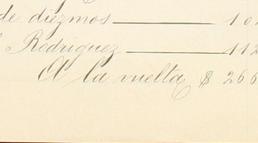 de diezmos 10
Rodriguez 112
A la vuelta $ 266